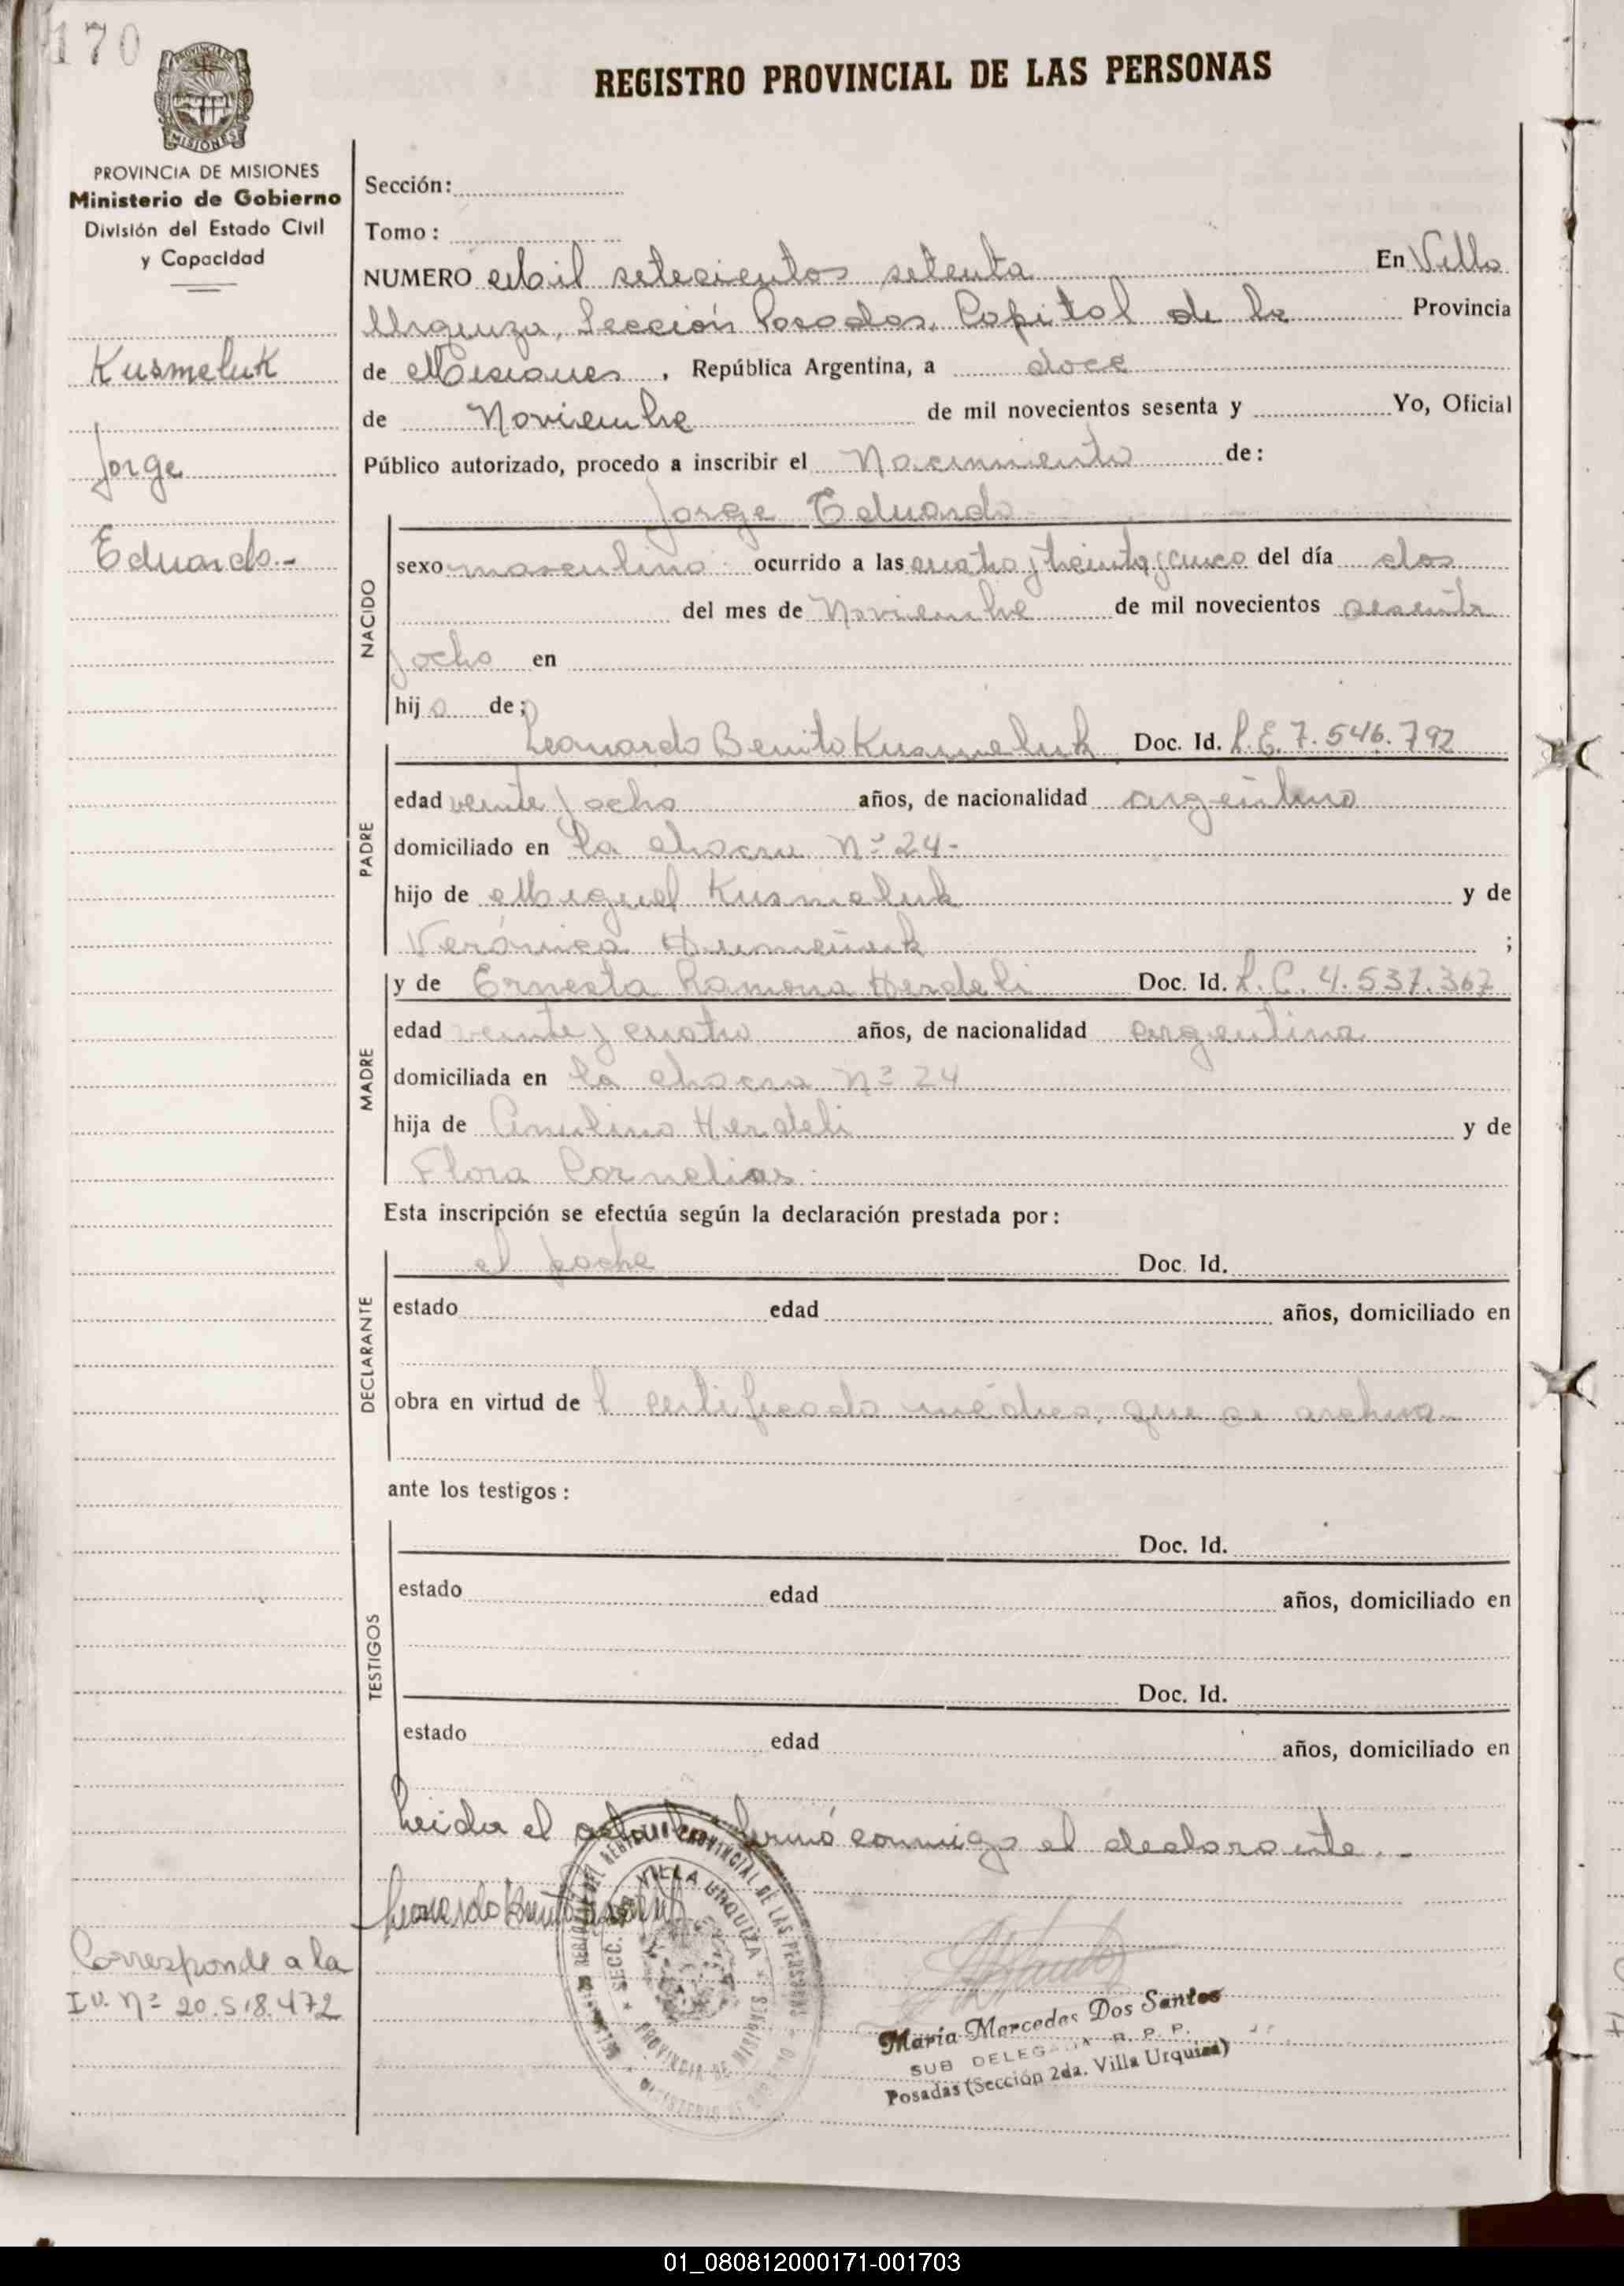 170
REGISTRO PROVINCIAL DE LAS PERSONAS
PROVINCIA DE MISIONES
Ministerio de Gobierno
División del Estado Civil
y Capacidad
Kusmeluk
Jorge
Eduardo.-
Corresponde a la
I.U. Nº 20.518.472
Sección:
Tomo:
NUMERO Mil setecientos setenta En Villa
Urquiza, Sección Posadas, Capital de la Provincia
de Misiones, República Argentina, a doce
de Noviembre de mil novecientos sesenta y Yo, Oficial
Público autorizado, procedo a inscribir el Nacimiento de:
Jorge Eduardo
NACIDO
sexo masculino ocurrido a las cuatro y treinta y cinco del día dos
del mes de Noviembre de mil novecientos sesenta
y ocho en
hijo de;
PADRE
Leonardo Benito Kusmeluk Doc. Id. L.E. 7.546.792
edad veinte y ocho años, de nacionalidad argentino
domiciliado en la chacra Nº 24-
hijo de Miguel Kusmeluk y de
Verónica ;
MADRE
y de Ernesta Ramona Herdeli Doc. Id. L.C. 4.537.367
edad veinte y cuatro años, de nacionalidad argentina
domiciliada en la chacra Nº 24
hija de Herdeli y de
Flora Cornelias
Esta inscripción se efectúa según la declaración prestada por:
DECLARANTE
el padre Doc. Id.
estado edad años, domiciliado en
obra en virtud de l certificado médico, que se archiva
ante los testigos:
TESTIGOS
Doc. Id.
estado edad años, domiciliado en
Doc. Id.
estado edad años, domiciliado en
Leida el acta la firmó conmigo el declarante.-
Leonardo Benito
VILLA URQUIZA
María Mercedes Dos Santos
SUB DELEGADA R. P. P.
Posadas (Sección 2da. Villa Urquiza)
01_080812000171-001703